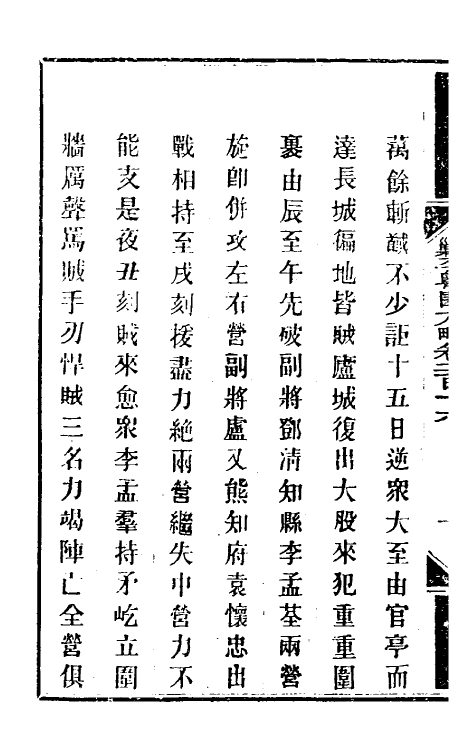 萬餘斬馘不少詎十五日逆衆大至由官亭而
達長城徧地皆賊廬城復出大股來犯重重圍
裹由辰至午先破副將鄧清知縣李孟荃兩營
旋卽併攻左右營副將盧又熊知府袁懷忠出
戰相持至戌刻援盡力絶兩營繼失中營力不
能支是夜丑刻賊來愈衆李孟羣持矛屹立圍
牆厲聲罵賊手刃悍賊三名力竭陣亡全營俱